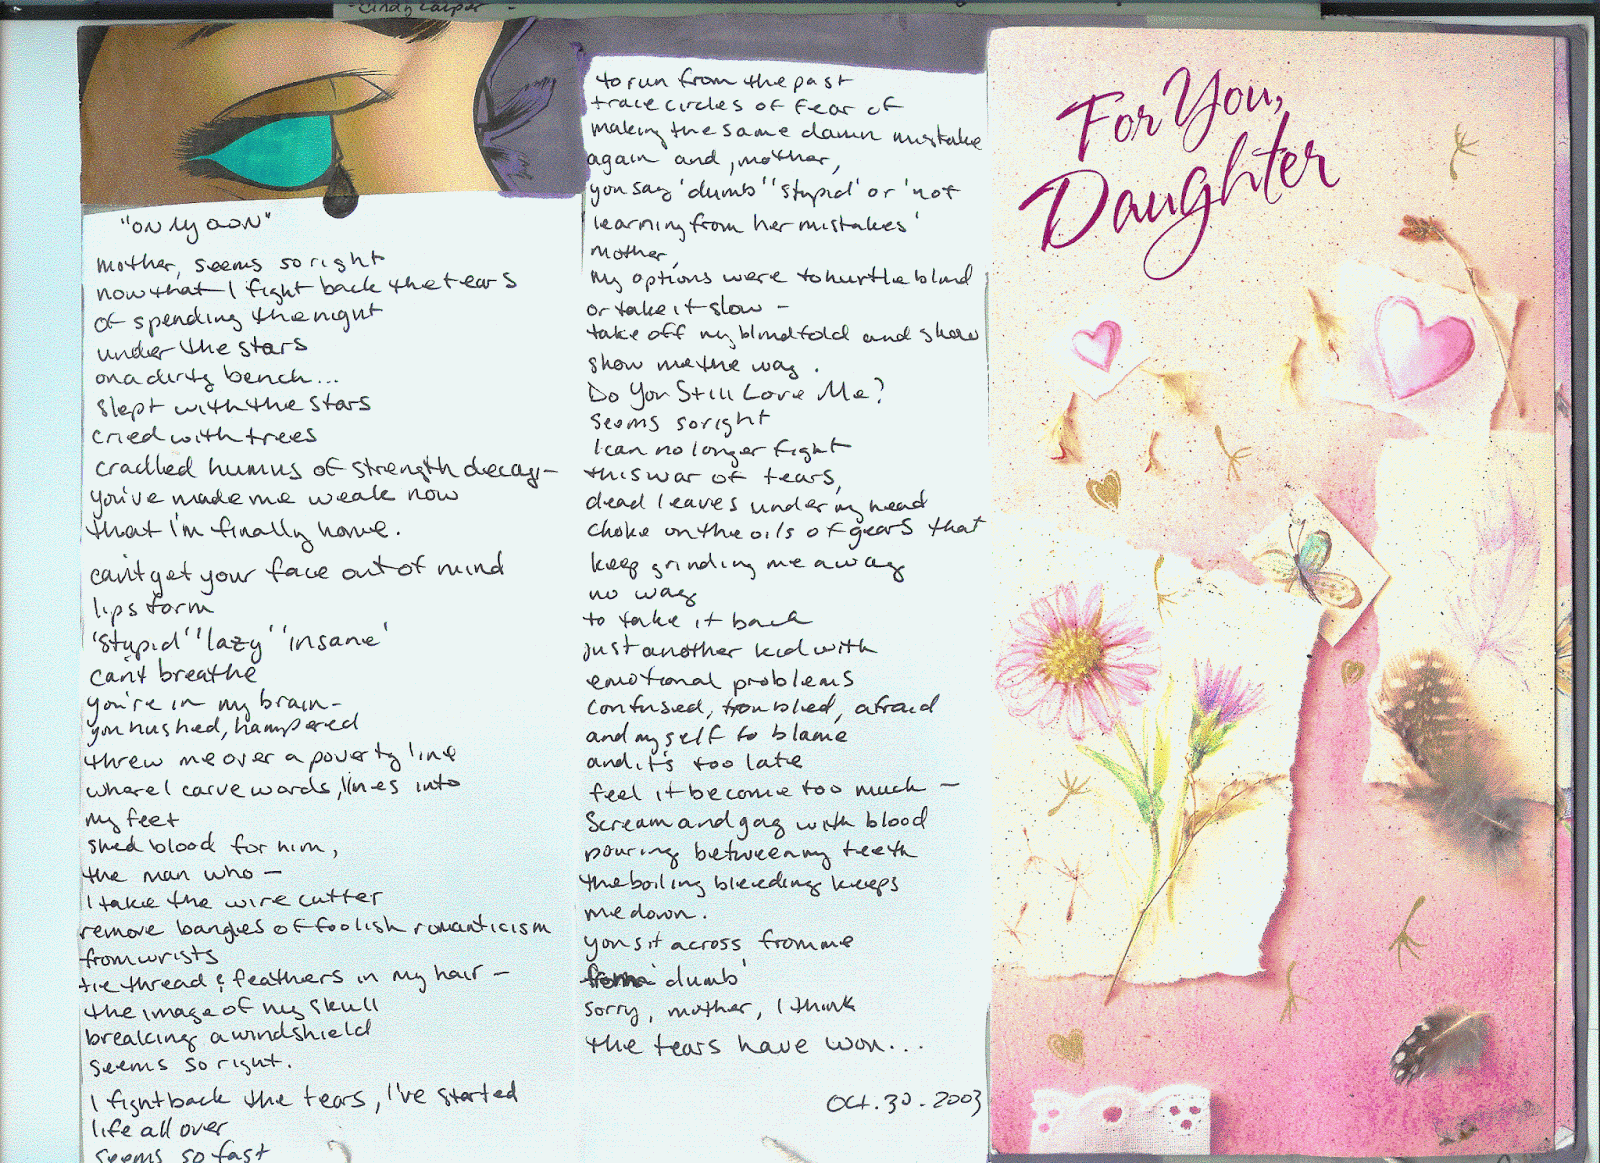 Cindy Lauper -
"only own"
mother, seems so right
now that I fight back the tears
of spending the night
under the stars
on a dirty bench...
slept with the stars
cried with trees
cradled humus of strength decay -
you've made me weak now
that I'm finally home.
can't get your face out of mind
lips form
'stupid' 'lazy' 'insane'
can't breathe
you're in my brain -
you hushed, hampered
threw me over a poverty line
where I carve words, lines into
my feet
shed blood for him,
the man who -
I take the wire cutter
remove bangles of foolish romanticism
from wrists
tie thread & feathers in my hair -
the image of my skull
breaking a windshield
seems so right.
I fight back the tears, I've started
life all over
seems so fast
to run from the past
trace circles of fear of
making the same damn mistake
again and, mother,
you say 'dumb' 'stupid' or 'not
learning from her mistakes'
mother,
my options were to hurt the blind
or take it slow -
take off my blindfold and show
show me the way.
Do You Still Love Me?
seems so right
I can no longer fight
this war of tears,
dead leaves under my head
choke on the oils of gears that
keep grinding me away
no way
to take it back
just another kid with
emotional problems
confused, troubled, afraid
and myself to blame
and it's too late
feel it become too much -
scream and gag with blood
pouring between my teeth
the boiling bleeding keeps
me down.
you sit across from me
'dumb'
sorry, mother, I think
the tears have won...
Oct. 30. 2003
For You,
Daughter